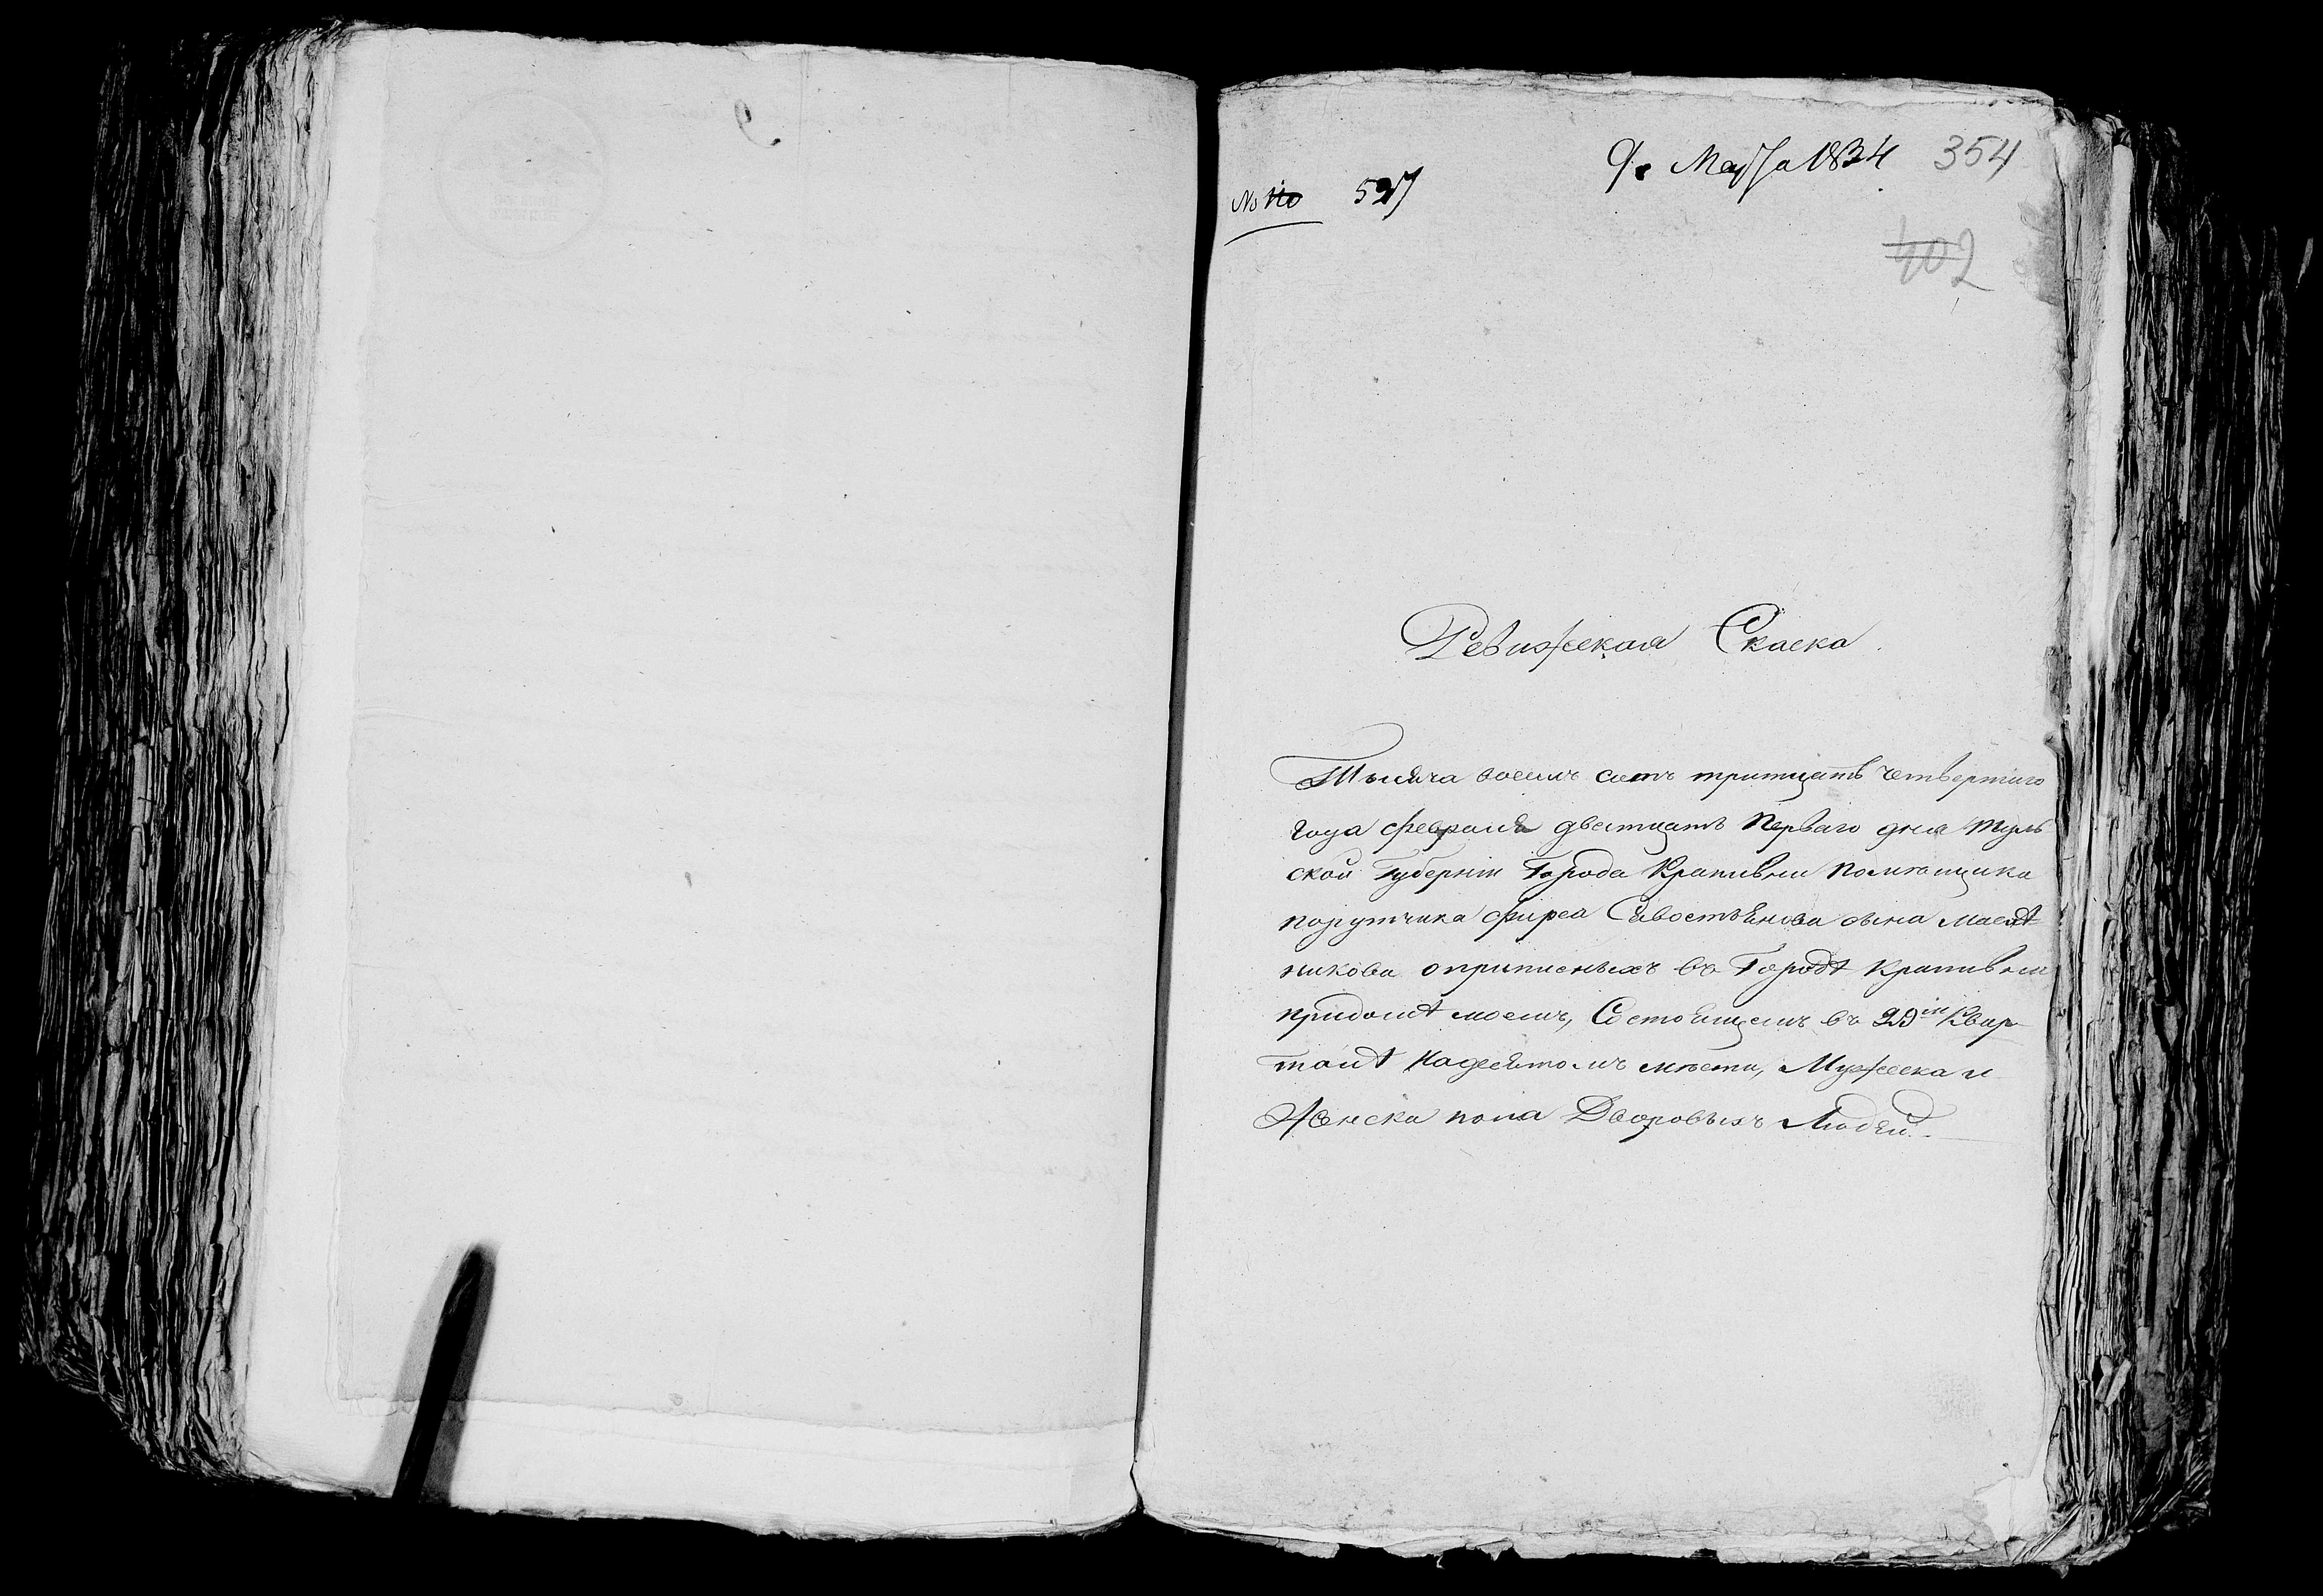 9е Марта 1834 354
№ 110 527
402
Ревижская Скаска.
Тысяча восемь сотъ тритцать четвертаго
года февраля дватцать перваго дня туль
ской Губернiи Города Крапивны помѣщика
порутчика фирса Савостьянова сына маслѣ-
никова оприписныхъ въ Городѣ крапивны
придомѣ моемъ, Состоящемъ въ 29мъ Квар-
талѣ надесятомъ мѣсти, Мужеска и
Женска пола Дворовыхъ Людей.